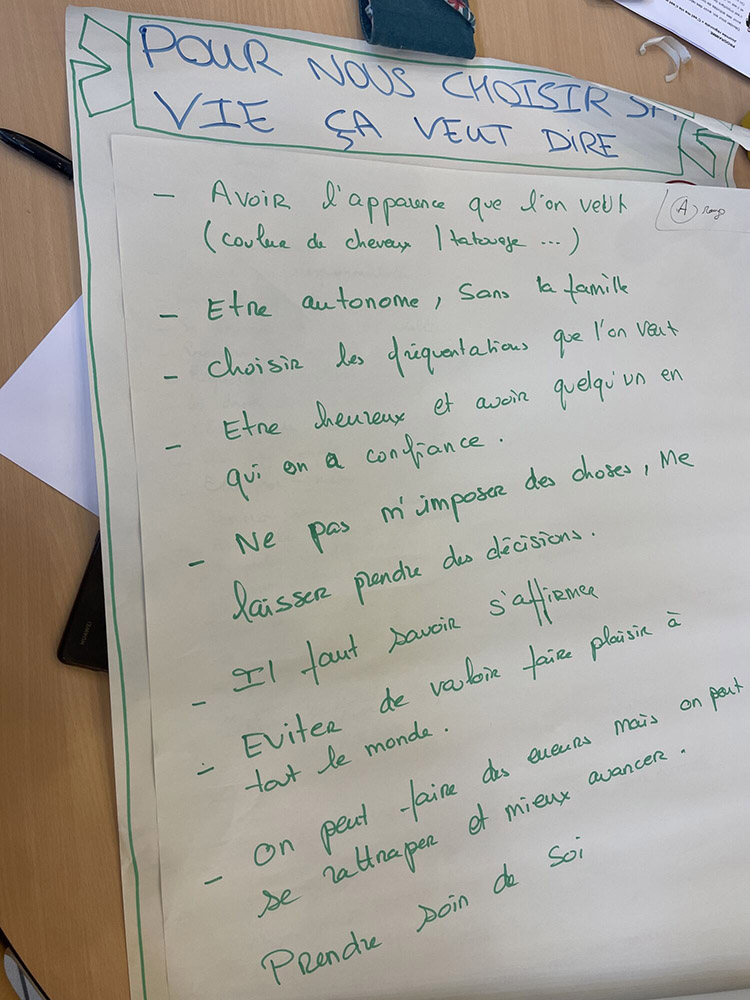 POUR NOUS CHOISIR SA
VIE ÇA VEUT DIRE
- Avoir l'apparence que l'on veut
(couleur de cheveux / tatouage ...)
- Etre autonome, sans la famille
- choisir les fréquentations que l'on veut
- Etre heureux et avoir quelqu'un en
qui on a confiance.
- Ne pas m'imposer des choses, Me
laisser prendre des décisions.
- Il faut savoir s'affirmer
- Eviter de vouloir faire plaisir à
tout le monde.
- On peut faire des erreurs mais on peut
se rattraper et mieux avancer.
Prendre soin de soi
A